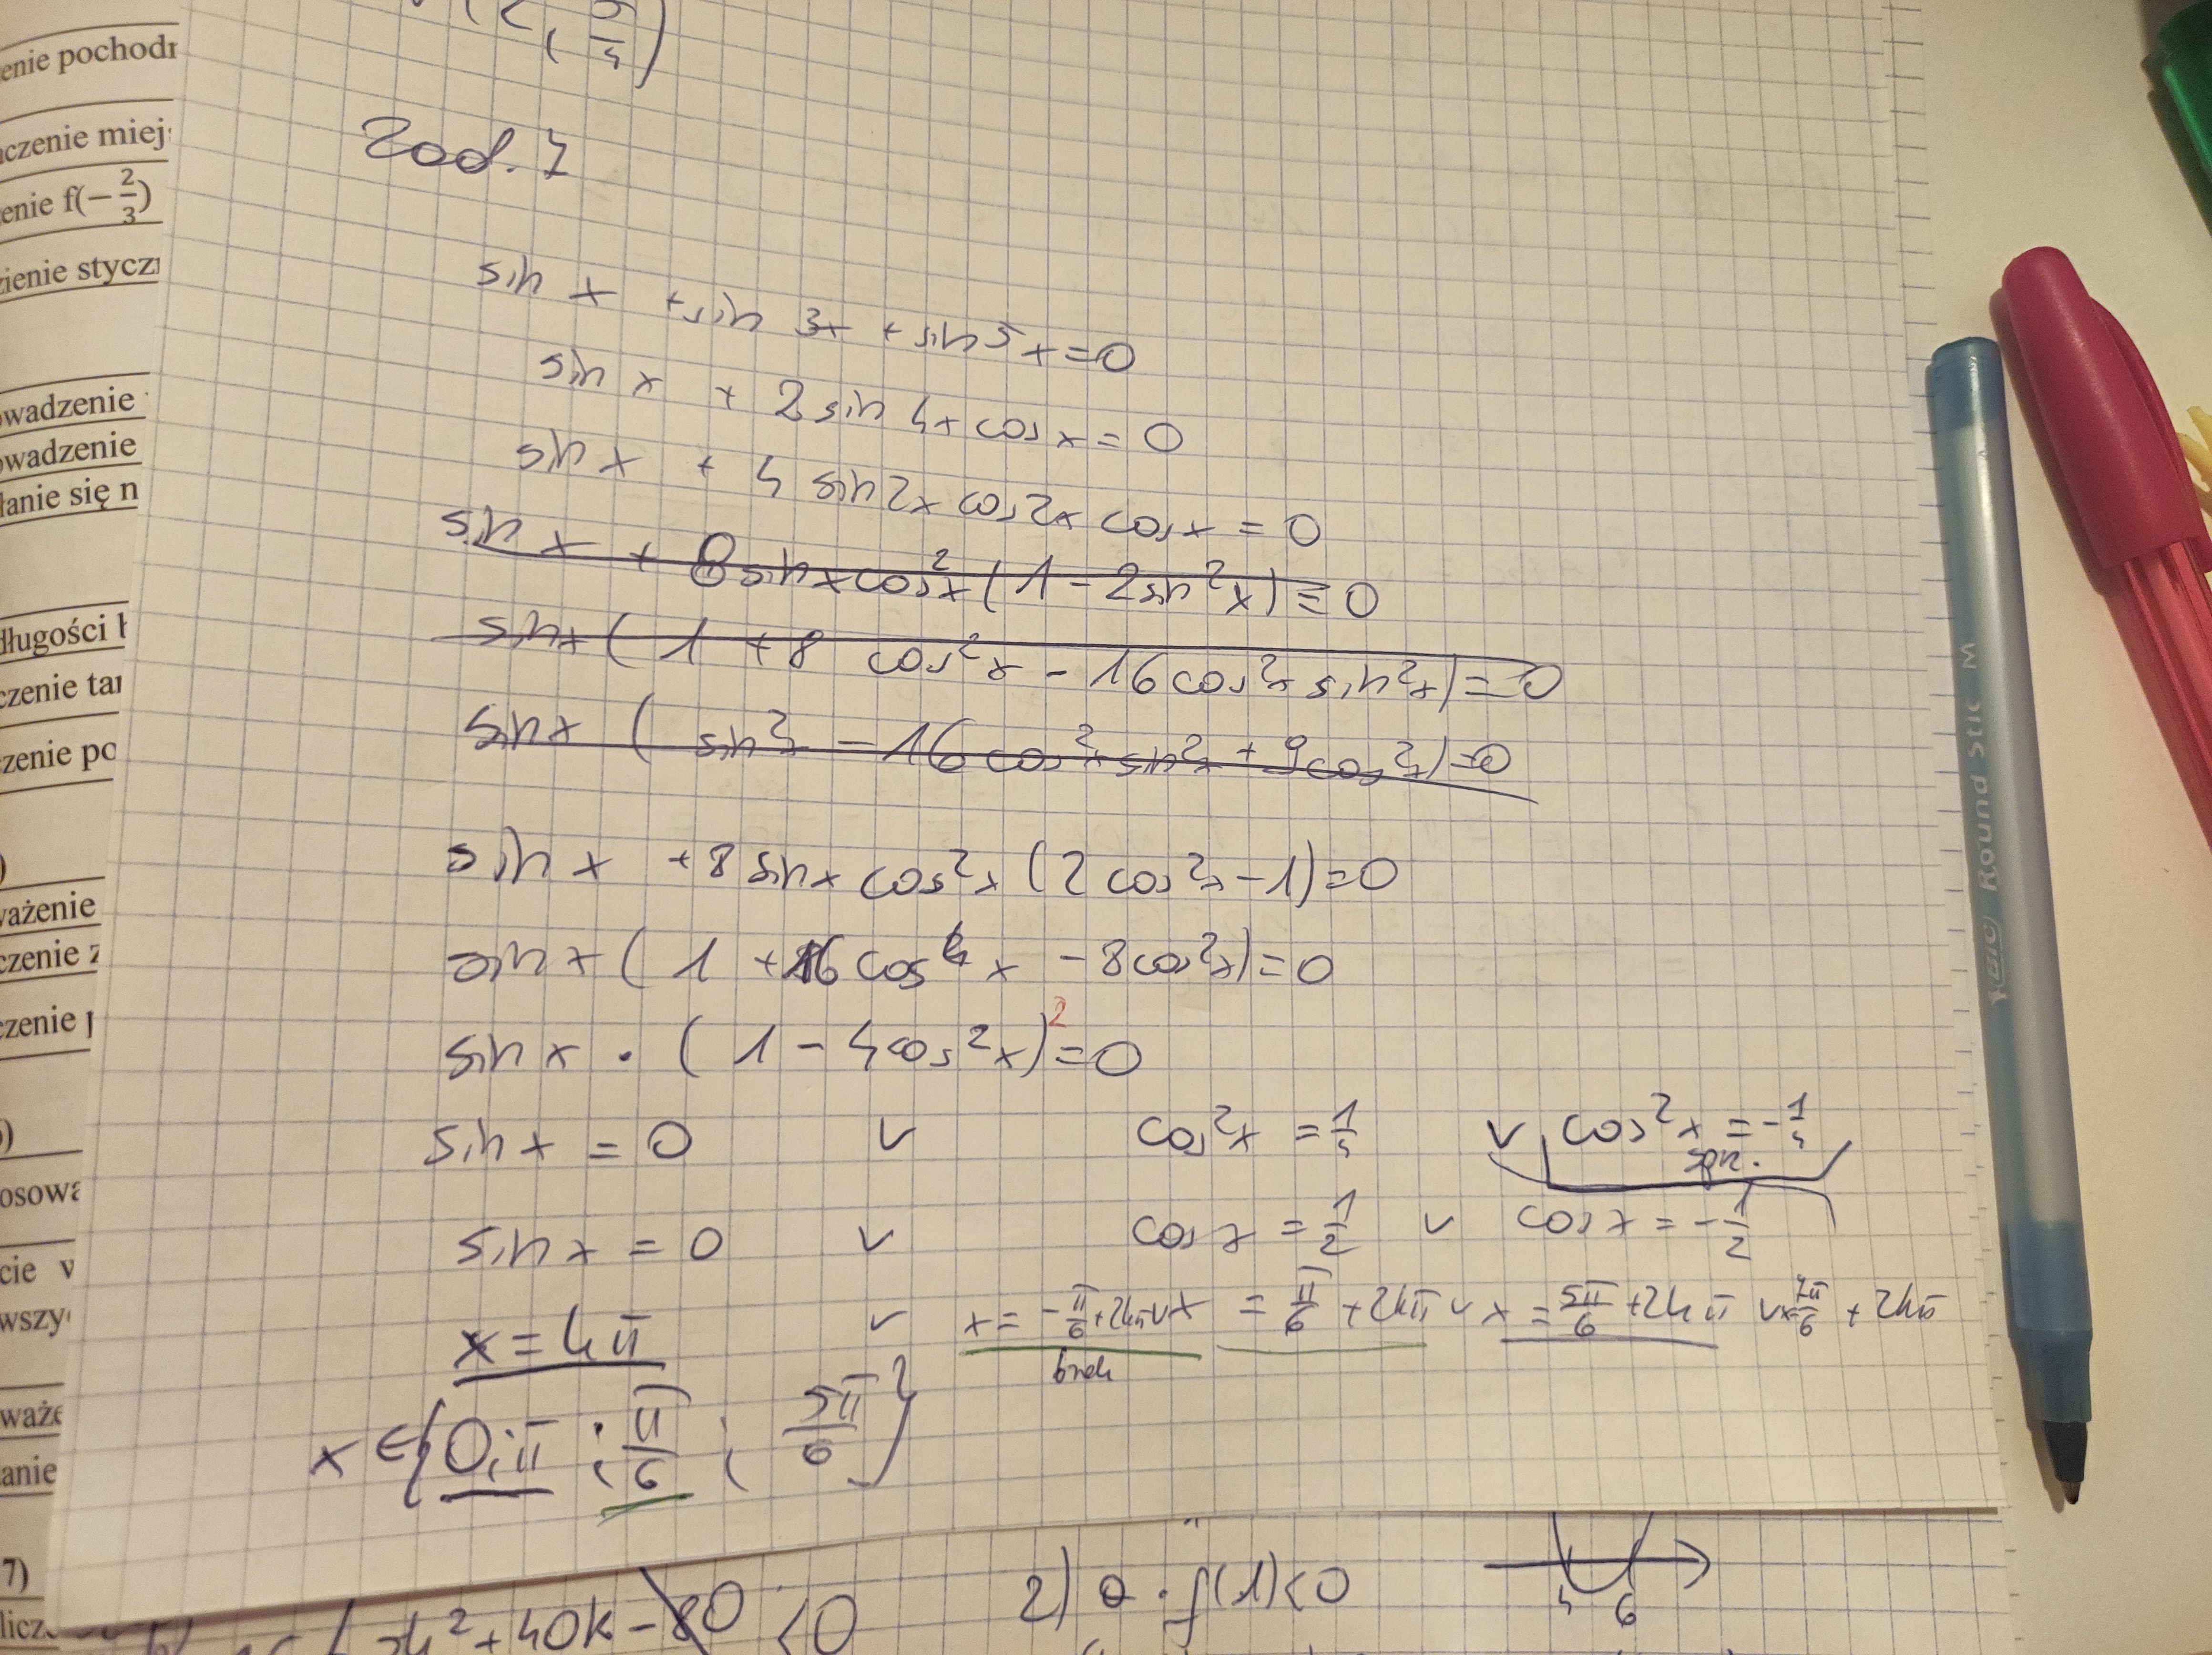 enie pochodn
czenie miejs
enie f(−2/3)
zienie styczn
owadzenie
owadzenie
łanie się n
długości b
czenie tan
czenie po
)
ważenie
czenie z
czenie p
)
osowa
cie w
wszy
waże
anie
7)
licz
Zad. 7
sin x + sin 3x + sin 5x = 0
sin x + 2 sin 4x cos x = 0
sin x + 4 sin 2x cos 2x cos x = 0
sin x + 8 sin x cos²x (1 − 2 sin²x) = 0
sin x ( 1 + 8 cos²x − 16 cos²x sin²x) = 0
sin x ( sin²x − 16 cos²x sin²x + 9 cos²x) = 0
sin x + 8 sin x cos²x (2 cos²x − 1) = 0
sin x ( 1 + 16 cos⁴x − 8 cos²x) = 0
sin x · ( 1 − 4 cos²x)² = 0
sin x = 0 v cos²x = 1/4 v cos²x = −1/4
spr.
sin x = 0 v cos x = 1/2 v cos x = −1/2
x = kπ v x = −π/6 + 2kπ v x = π/6 + 2kπ v x = 5π/6 + 2kπ v x = 7π/6 + 2kπ
brak
x ∈ { 0; π ; π/6 ; 5π/6 }
+ 40k − 80 < 0
2) a · f(1) < 0
4 6
BIC Round Stic M